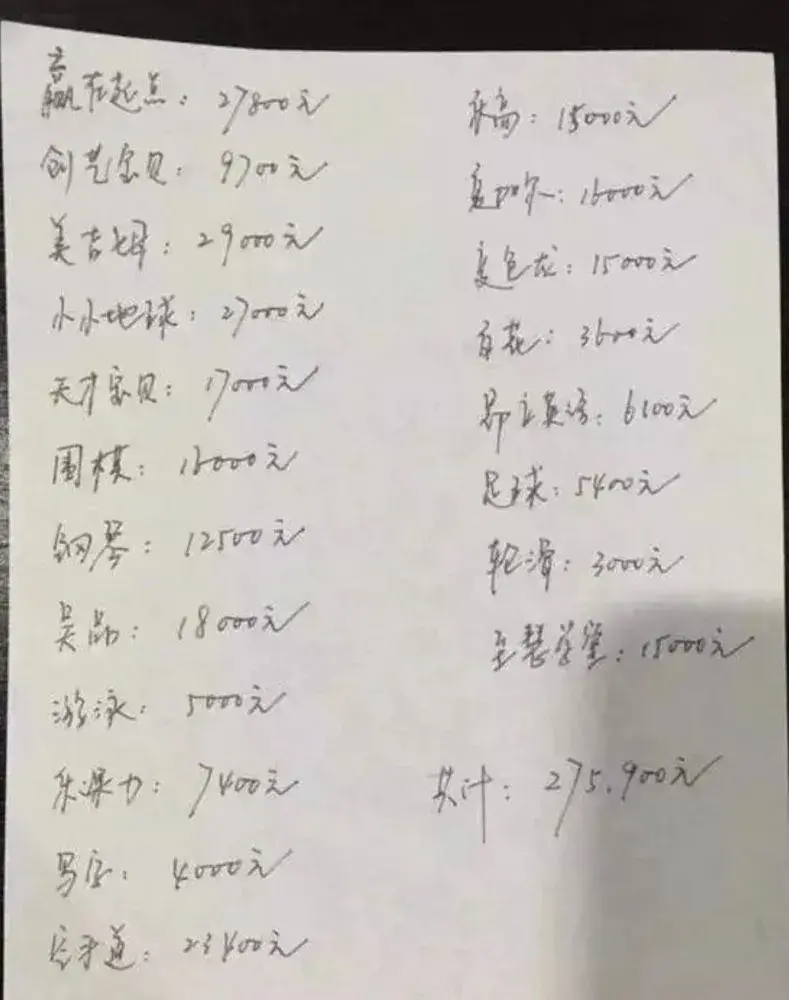 赢在起点：27800元
创艺宝贝：9700元
美吉姆：29000元
小小地球：27000元
天才宝贝：17000元
围棋：16000元
钢琴：12500元
：18000元
游泳：5000元
：7400元
写字：4000元
空手道：23400元
乐高：15000元
夏加尔：16000元
变色龙：15000元
百花：3600元
昂立英语：6100元
足球：5400元
轮滑：3000元
至慧学堂：15000元
共计：275.900元